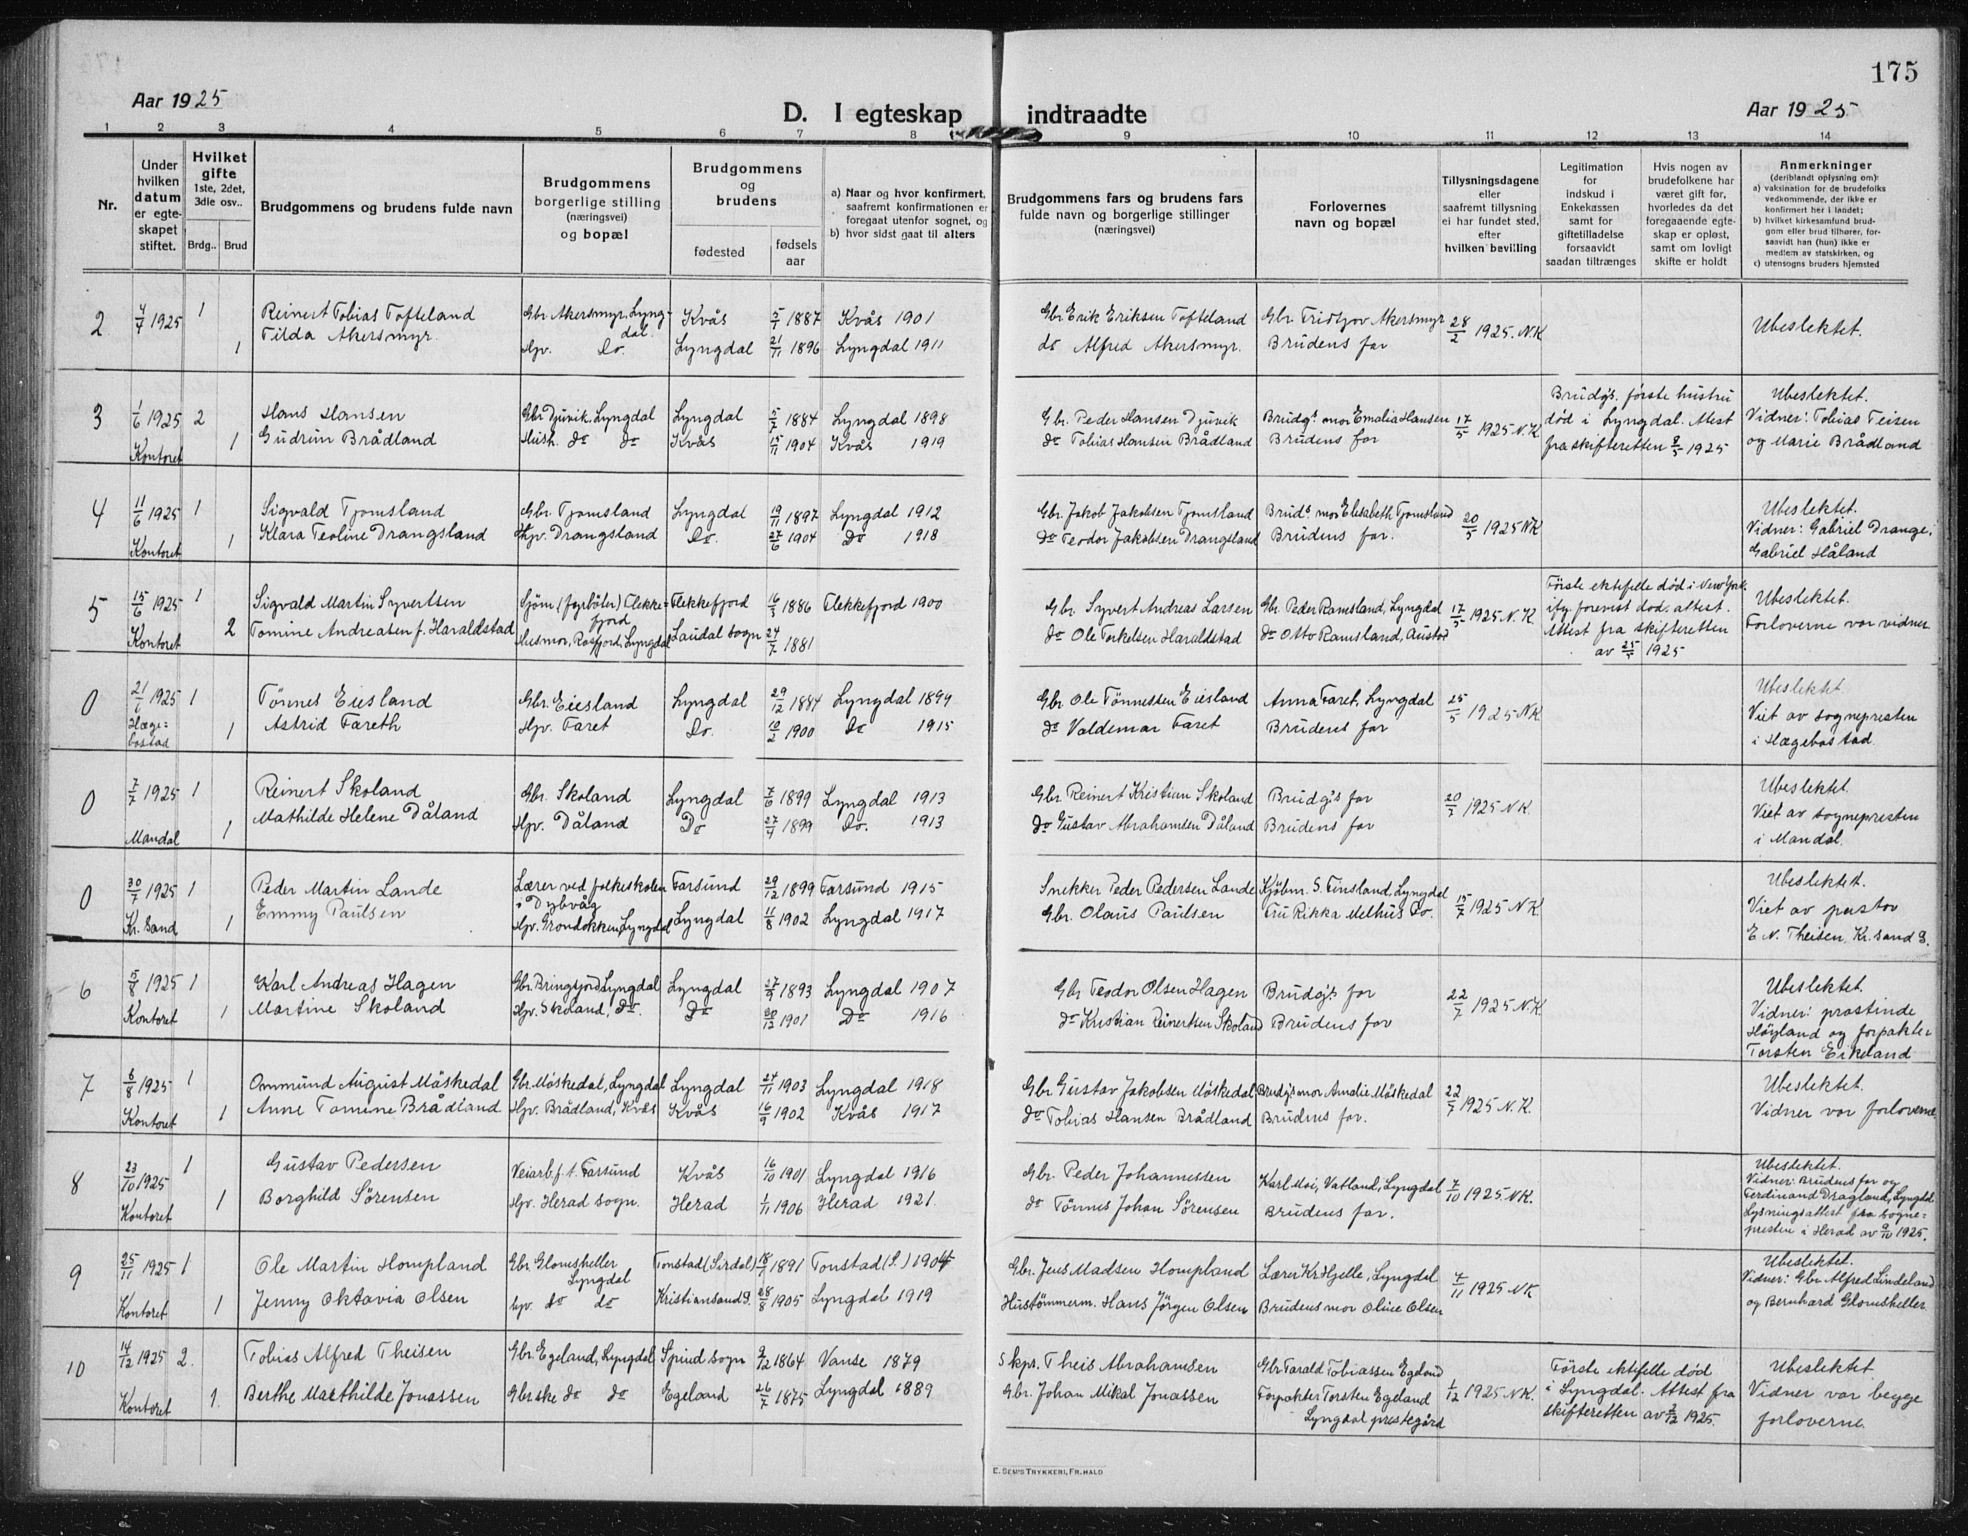 175
Aar 1925
D. I egteskap indtraadte
Aar 1925
1 2 3 4 5 6 7 8 9 10 11 12 13 14
Nr.
Under hvilken datum er egteskapet stiftet.
Hvilket gifte 1ste, 2det, 3die osv..
Brdg.. Brud
Brudgommens og brudens fulde navn
Brudgommens borgerlige stilling (næringsvei) og bopæl
Brudgommens og brudens
fødested
fødsels aar
a) Naar og hvor konfirmert, saafremt konfirmationen er foregaat utenfor sognet, og
b) hvor sidst gaat til alters
Brudgommens fars og brudens fars fulde navn og borgerlige stillinger (næringsvei)
Forlovernes navn og bopæl
Tillysningsdagene eller saafremt tillysning ei har fundet sted, efter hvilken bevilling
Legitimation for indskud i Enkekassen samt for giftetilladelse forsaavidt saadan tiltrænges
Hvis nogen av brudefolkene har været gift før, hvorledes da det foregaaende egteskap er opløst, samt om lovligt skifte er holdt
Anmerkninger (deriblandt oplysning om):
a) vaksination for de brudefolks vedkommende, der ikke er konfirmert her i landet;
b) hvilket kirkesamfund brudgom eller brud tilhører, forsaavidt han (hun) ikke er medlem av statskirken, og
c) utensogns bruders hjemsted
2 4/7 1925 1 Reinert Tobias Tofteland Gbr. Akersmyr, Lyngdal. Kvås 5/1 1887 Kvås 1901 Gbr. Erik Eriksen Tofteland Gbr. Fridtjov Akersmyr 28/2 1925. N.K Ubeslektet.
1 Tilda Akersmyr. Hpv. Do. Lyngdal 21/11 1896 Lyngdal 1911 do Alfred Akersmyr. Brudens far
3 1/6 1925 2 Hans Hansen Gbr. Djuvik, Lyngdal Lyngdal 5/7 1884 Lyngdal 1898 Gbr. Peder Hansen Djuvik Brudgs. mor Emalia Hansen 17/5 1925 N.K Brudgs. første hustru død i Lyngdal. Attest fra skifteretten 8/5 1925 Ubeslektet. Vidner: Tobias Teisen og Marie Brådland
Kontoret 1 Gudrun Brådland Hush. do do Kvås 15/11 1904 Kvås 1919 do Tobias Hansen Brådland Brudens far
4 11/6 1925 1 Sigvald Tjomsland Gbr. Tjomsland Lyngdal 19/11 1897 Lyngdal 1912 Gbr. Jakob Jakobsen Tjomsland Brudgs. mor Elisabeth Tjomsland 20/5 1925 NK Ubeslektet. Vidner: Gabriel Drange, Gabriel Håland
Kontoret 1 Klara Teoline Drangsland Hpv. Drangsland Do. 27/6 1904 Do 1918 do Teodor Jakobsen Drangsland Brudens far.
5 15/6 1925 1 Sigvald Martin Syvertsen Sjøm. (fyrbøter) Flekkefjord Flekkefjord 16/3 1886 Flekkefjord 1900 Gbr. Syvert Andreas Larsen Gbr. Peder Ramsland, Lyngdal 17/5 1925 N.K. Første ektefelle død i New York ifg. forevist døds attest. Attest fra skifteretten av 25/5 1925 Ubeslektet. Forloverne var vidner
Kontoret 2 Tomine Andreasen f. Haraldstad Husmor, Rosfjord, Lyngdal Laudal sogn 24/7 1881 do Ole Torkelsen Haraldstad do Otto Ramsland, Austad
0 21/6 1925 1 Tønnes Eiesland Gbr. Eiesland Lyngdal 29/12 1884 Lyngdal 1899 Gbr. Ole Tønnessen Eiesland Anna Faret, Lyngdal 25/5 1925 NK Ubeslektet. Viet av sognepresten i Hægebostad.
Hægebostad 1 Astrid Fareth Hpv. Faret Do. 10/2 1900 Do 1915 do Valdemar Faret Brudens far
0 7/7 1925 1 Reinert Skoland Gbr. Skoland Lyngdal 7/6 1899 Lyngdal 1913 Gbr. Reinert Kristian Skoland Brudgs far 20/7 1925 NK. Ubeslektet. Viet av sognepresten i Mandal.
Mandal 1 Mathilde Helene Dåland Hpv. Dåland Do 27/9 1899 Do. 1913 do Gustav Abrahamsen Dåland Brudens far
0 30/7 1925 1 Peder Martin Lande Lærer ved folkeskolen i Dybvåg Farsund 29/12 1899 Farsund 1915 Snekker Peder Pedersen Lande Kjøbm. S. Finsland, Lyngdal 15/7 1925 N.K. Ubeslektet. Viet av pastor E. N. Theisen, Kr. sand S.
Kr. sand 1 Emmy Paulsen Hpv. Grondokken, Lyngdal Lyngdal 11/8 1902 Lyngdal 1917 Gbr. Olaus Paulsen Fru Rikka Melhus do.
6 5/8 1925 1 Karl Andreas Hagen Gbr. Bringsjord, Lyngdal Lyngdal 27/9 1893 Lyngdal 1907 Gbr Teodor Olsen Hagen Brudgs. far 22/7 1925 N.K Ubeslektet. Vidner: prostinde Høyland og forpakter Torsten Eikeland
Kontoret 1 Martine Skoland Hpv. Skoland, do. Do 30/12 1901 Do 1916 do Kristian Reinertsen Skoland Brudens far
7 6/8 1925 1 Ommund August Møskedal Gbr. Møskedal, Lyngdal Lyngdal 24/11 1903 Lyngdal 1918 Gbr Gustav Jakobsen Møskedal Brudgs mor Amalie Møskedal 22/7 1925 N.K. Ubeslektet. Vidner var forloverne
Kontoret 1 Anne Tomine Brådland Hpv. Brådland, Kvås Kvås 16/9 1902 Kvås 1917 do Tobias Hansen Brådland Brudens far.
8 23/10 1925 1 Gustav Pedersen Veiarb. f. t. Farsund Kvås 16/10 1901 Lyngdal 1916 Gbr. Peder Johannessen Karl Moi, Vatland, Lyngdal 7/10 1925 NK. Ubeslektet. Vidner: Brudens far og Ferdinand Dragland, Lyngdal Lysningsattest fra sognepresten i Herad av 9/10 1925.
Kontoret 1 Borghild Sørensen Hpv. Herad sogn. Herad 1/11 1906 Herad 1921. do Tønnes Johan Sørensen Brudens far.
9 25/11 1925 1 Ole Martin Hompland Gbr. Glomsheller Lyngdal Tonstad (Sirdal) 18/7 1891 Tonstad (S.) 1904 Gbr. Jens Madsen Hompland Lærer Kr. Hjelle, Lyngdal 7/11 1925 NK Ubeslektet. Vidner: Gbr Alfred Lindeland og Bernhard Glomsheller.
Kontoret 1 Jenny Oktavia Olsen hpv. do do Kristiansand S. 28/8 1905 Lyngdal 1919 Hustømmerm. Hans Jørgen Olsen Brudens mor Oline Olsen
10 14/12 1925 2. Tobias Alfred Theisen Gbr. Egeland, Lyngdal Spind sogn 9/12 1864 Vanse 1879 Skpr. Theis Abrahamsen Gbr Tarald Tobiassen Egeland 1/12 1925 NK. Første ektefelle død i Lyngdal. Attest fra skifteretten av 2/12 1925. Ubeslektet. Vidner var begge forloverne.
Kontoret 1. Berthe Marthilde Jonassen Gbrske do do Egeland 26/7 1875 Lyngdal 1889 Gbr. Johan Mikal Jonassen Forpakter Torsten Egeland Lyngdal prestegård
E. SEM'S TRYKKERI, FR.HALD